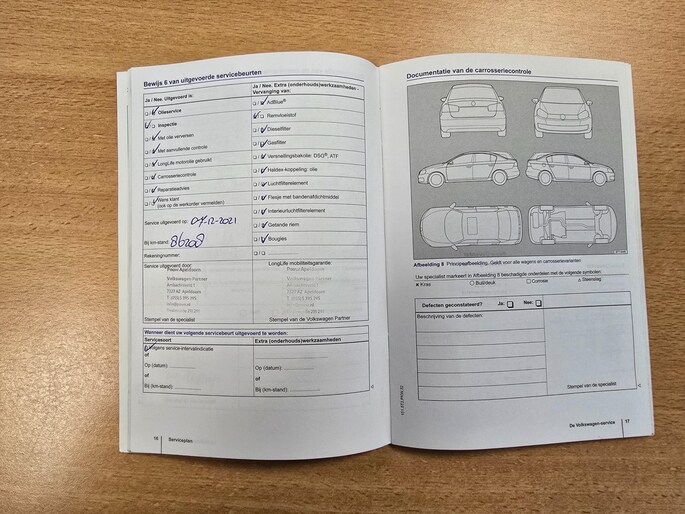 Bewijs 6 van uitgevoerde servicebeurten
Ja / Nee. Uitgevoerd is:
Olieservice
Inspectie
Met olie verversen
Met aanvullende controle
LongLife motorolie gebruikt
Carrosseriecontrole
Reparatieadvies
Wens klant
(ook op de werkorder vermelden)
Service uitgevoerd op: 07-12-2021
Bij km-stand: 86208
Rekeningnummer:
Service uitgevoerd door:
Pouw Apeldoorn
Volkswagen Partner
Stempel van de specialist
Ja / Nee. Extra (onderhouds)werkzaamheden -
Vervanging van:
AdBlue®
Remvloeistof
Dieselfilter
Gasfilter
Versnellingsbakolie: DSG®, ATF
Haldex-koppeling: olie
Luchtfilterelement
Flesje met bandenafdichtmiddel
Interieurluchtfilterelement
Getande riem
Bougies
LongLife mobiliteitsgarantie:
Pouw Apeldoorn
Volkswagen Partner
Stempel van de Volkswagen Partner
Wanneer dient uw volgende servicebeurt uitgevoerd te worden:
Servicesoort
Volgens service-intervalindicatie
of
Op (datum):
of
Bij (km-stand):
Extra (onderhouds)werkzaamheden
Op (datum):
of
Bij (km-stand):
16 Serviceplan
Documentatie van de carrosseriecontrole
Afbeelding 8 Principeafbeelding, Geldt voor alle wagens en carrosserievarianten
Uw specialist markeert in Afbeelding 8 beschadigde onderdelen met de volgende symbolen:
Kras Buil/deuk Corrosie Steenslag
Defecten geconstateerd? Ja: Nee:
Beschrijving van de defecten:
Stempel van de specialist
De Volkswagen-service 17